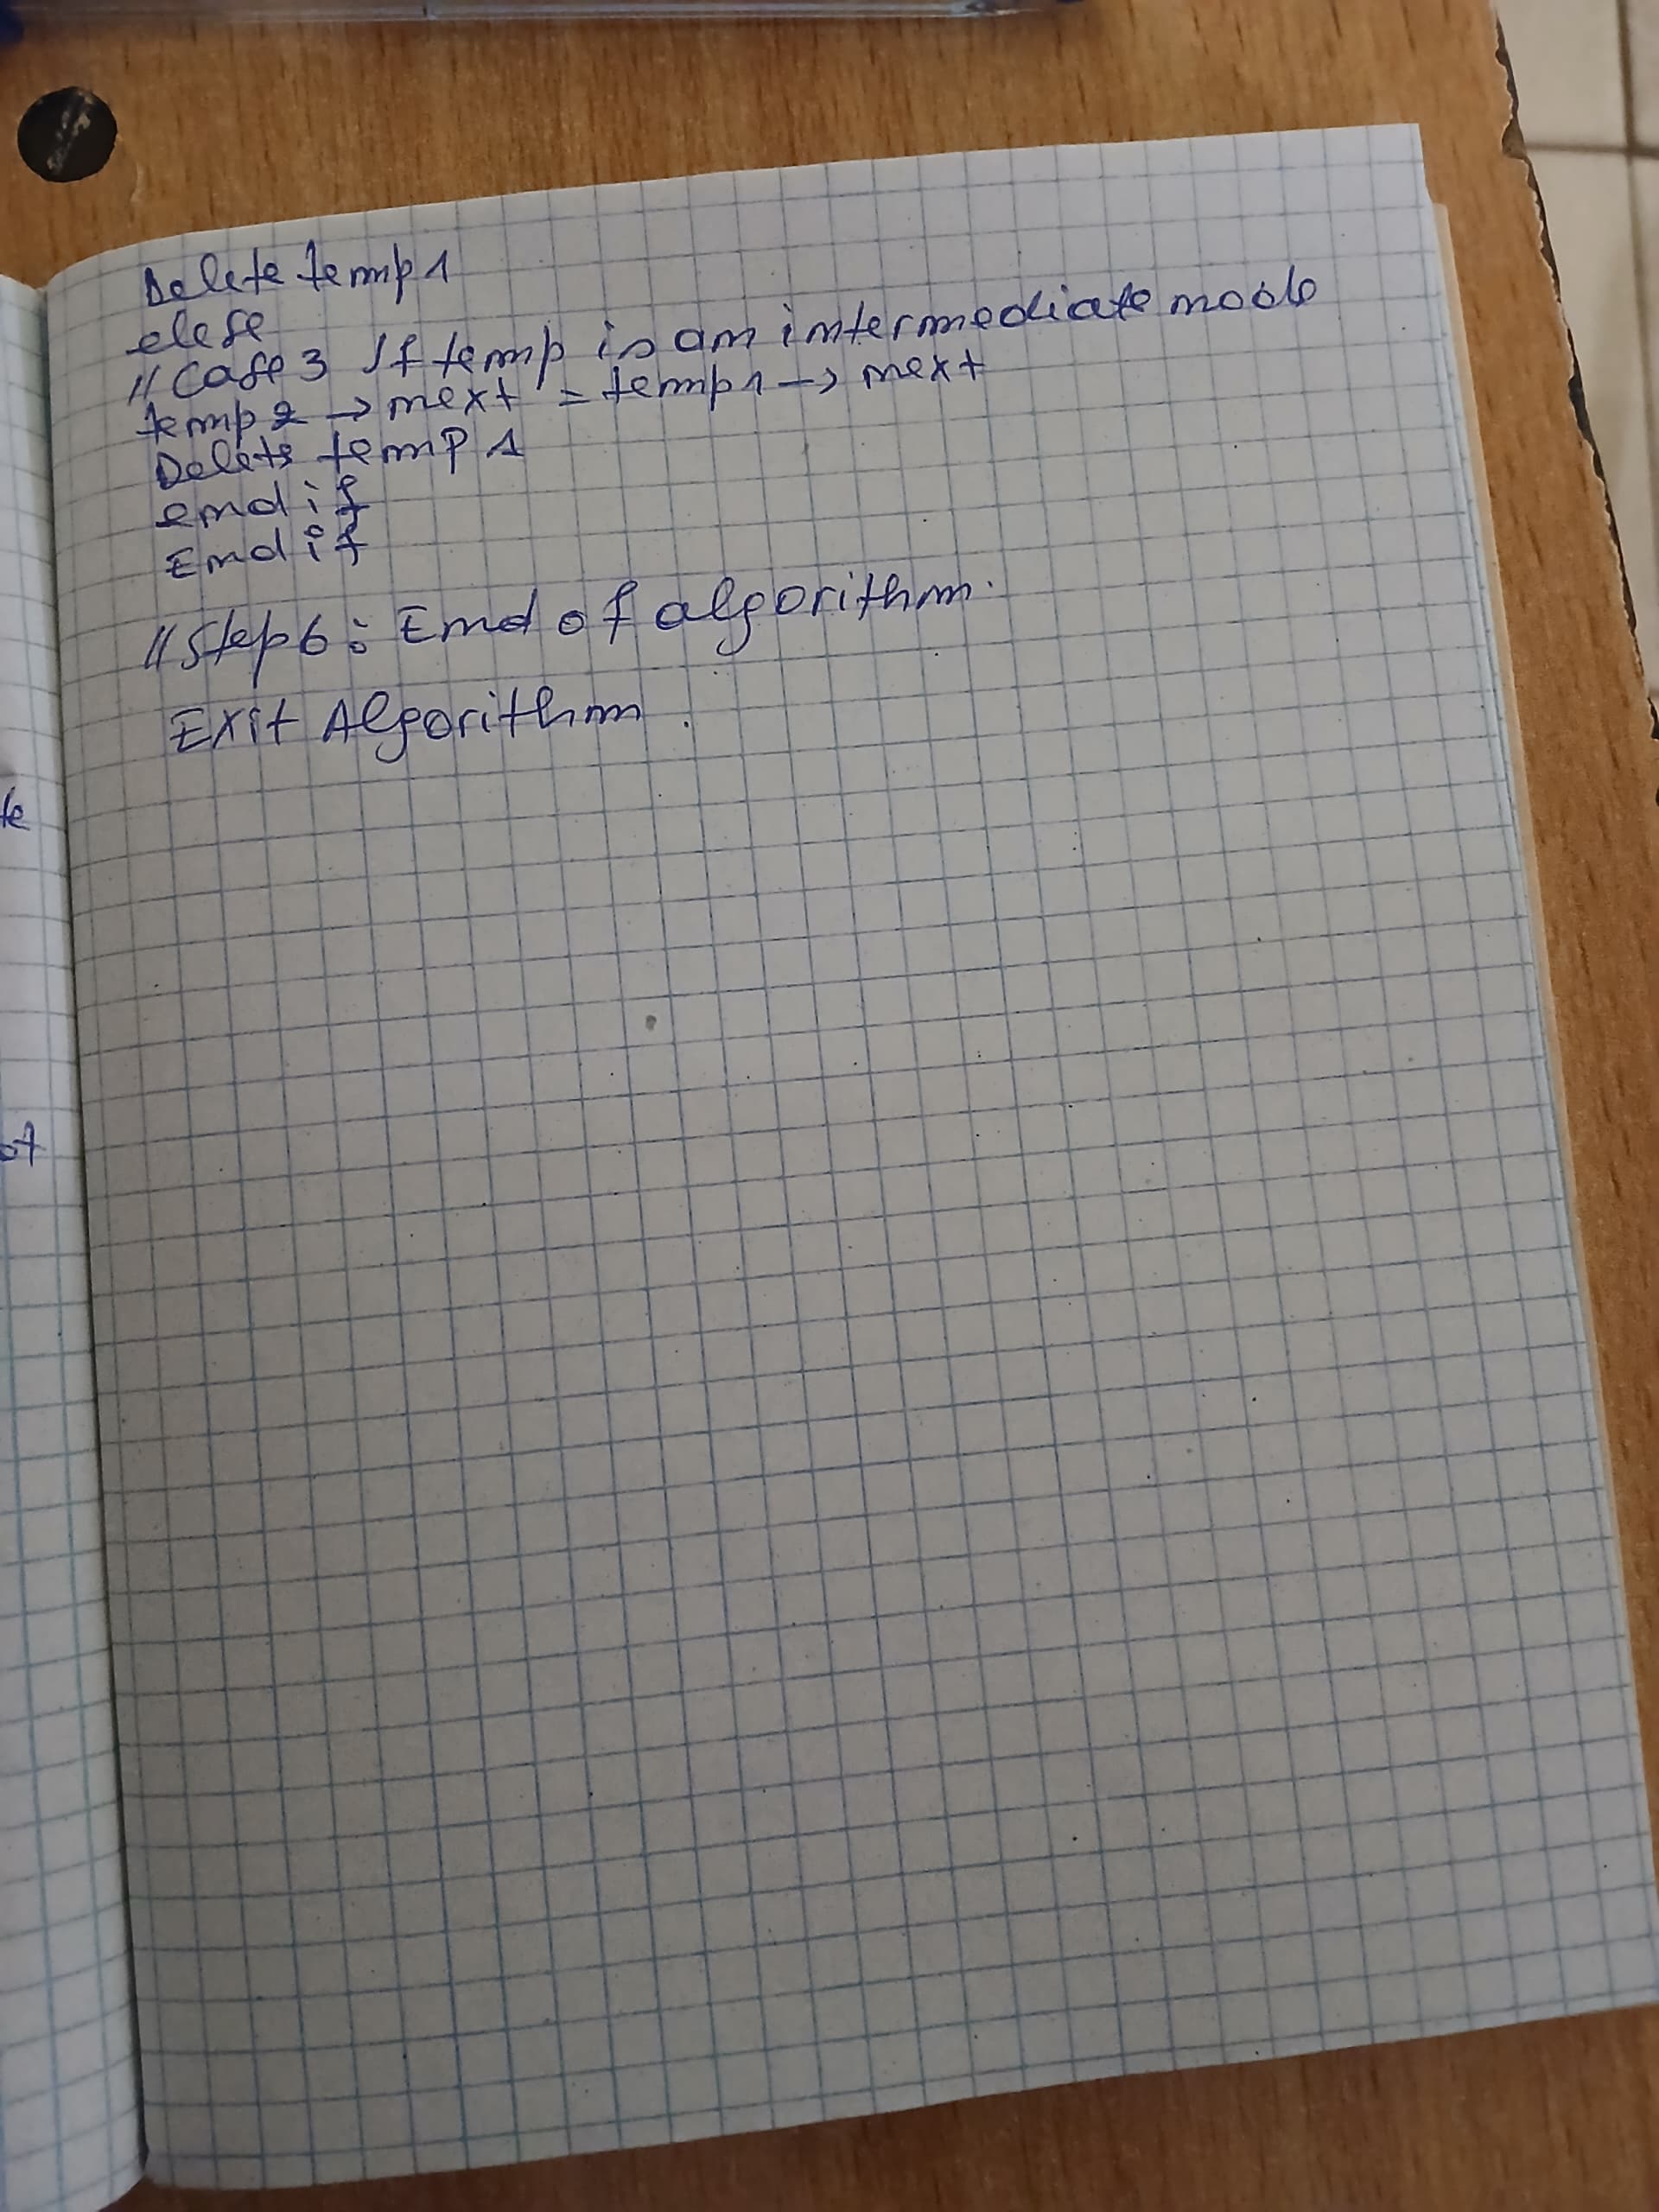 Delete temp1
else
// Case 3 If temp is an intermediate node
temp2 → next = temp1 → next
Delete temp 1
end if
End if
// Step 6 : End of algorithm.
Exit Algorithm.
te
ot